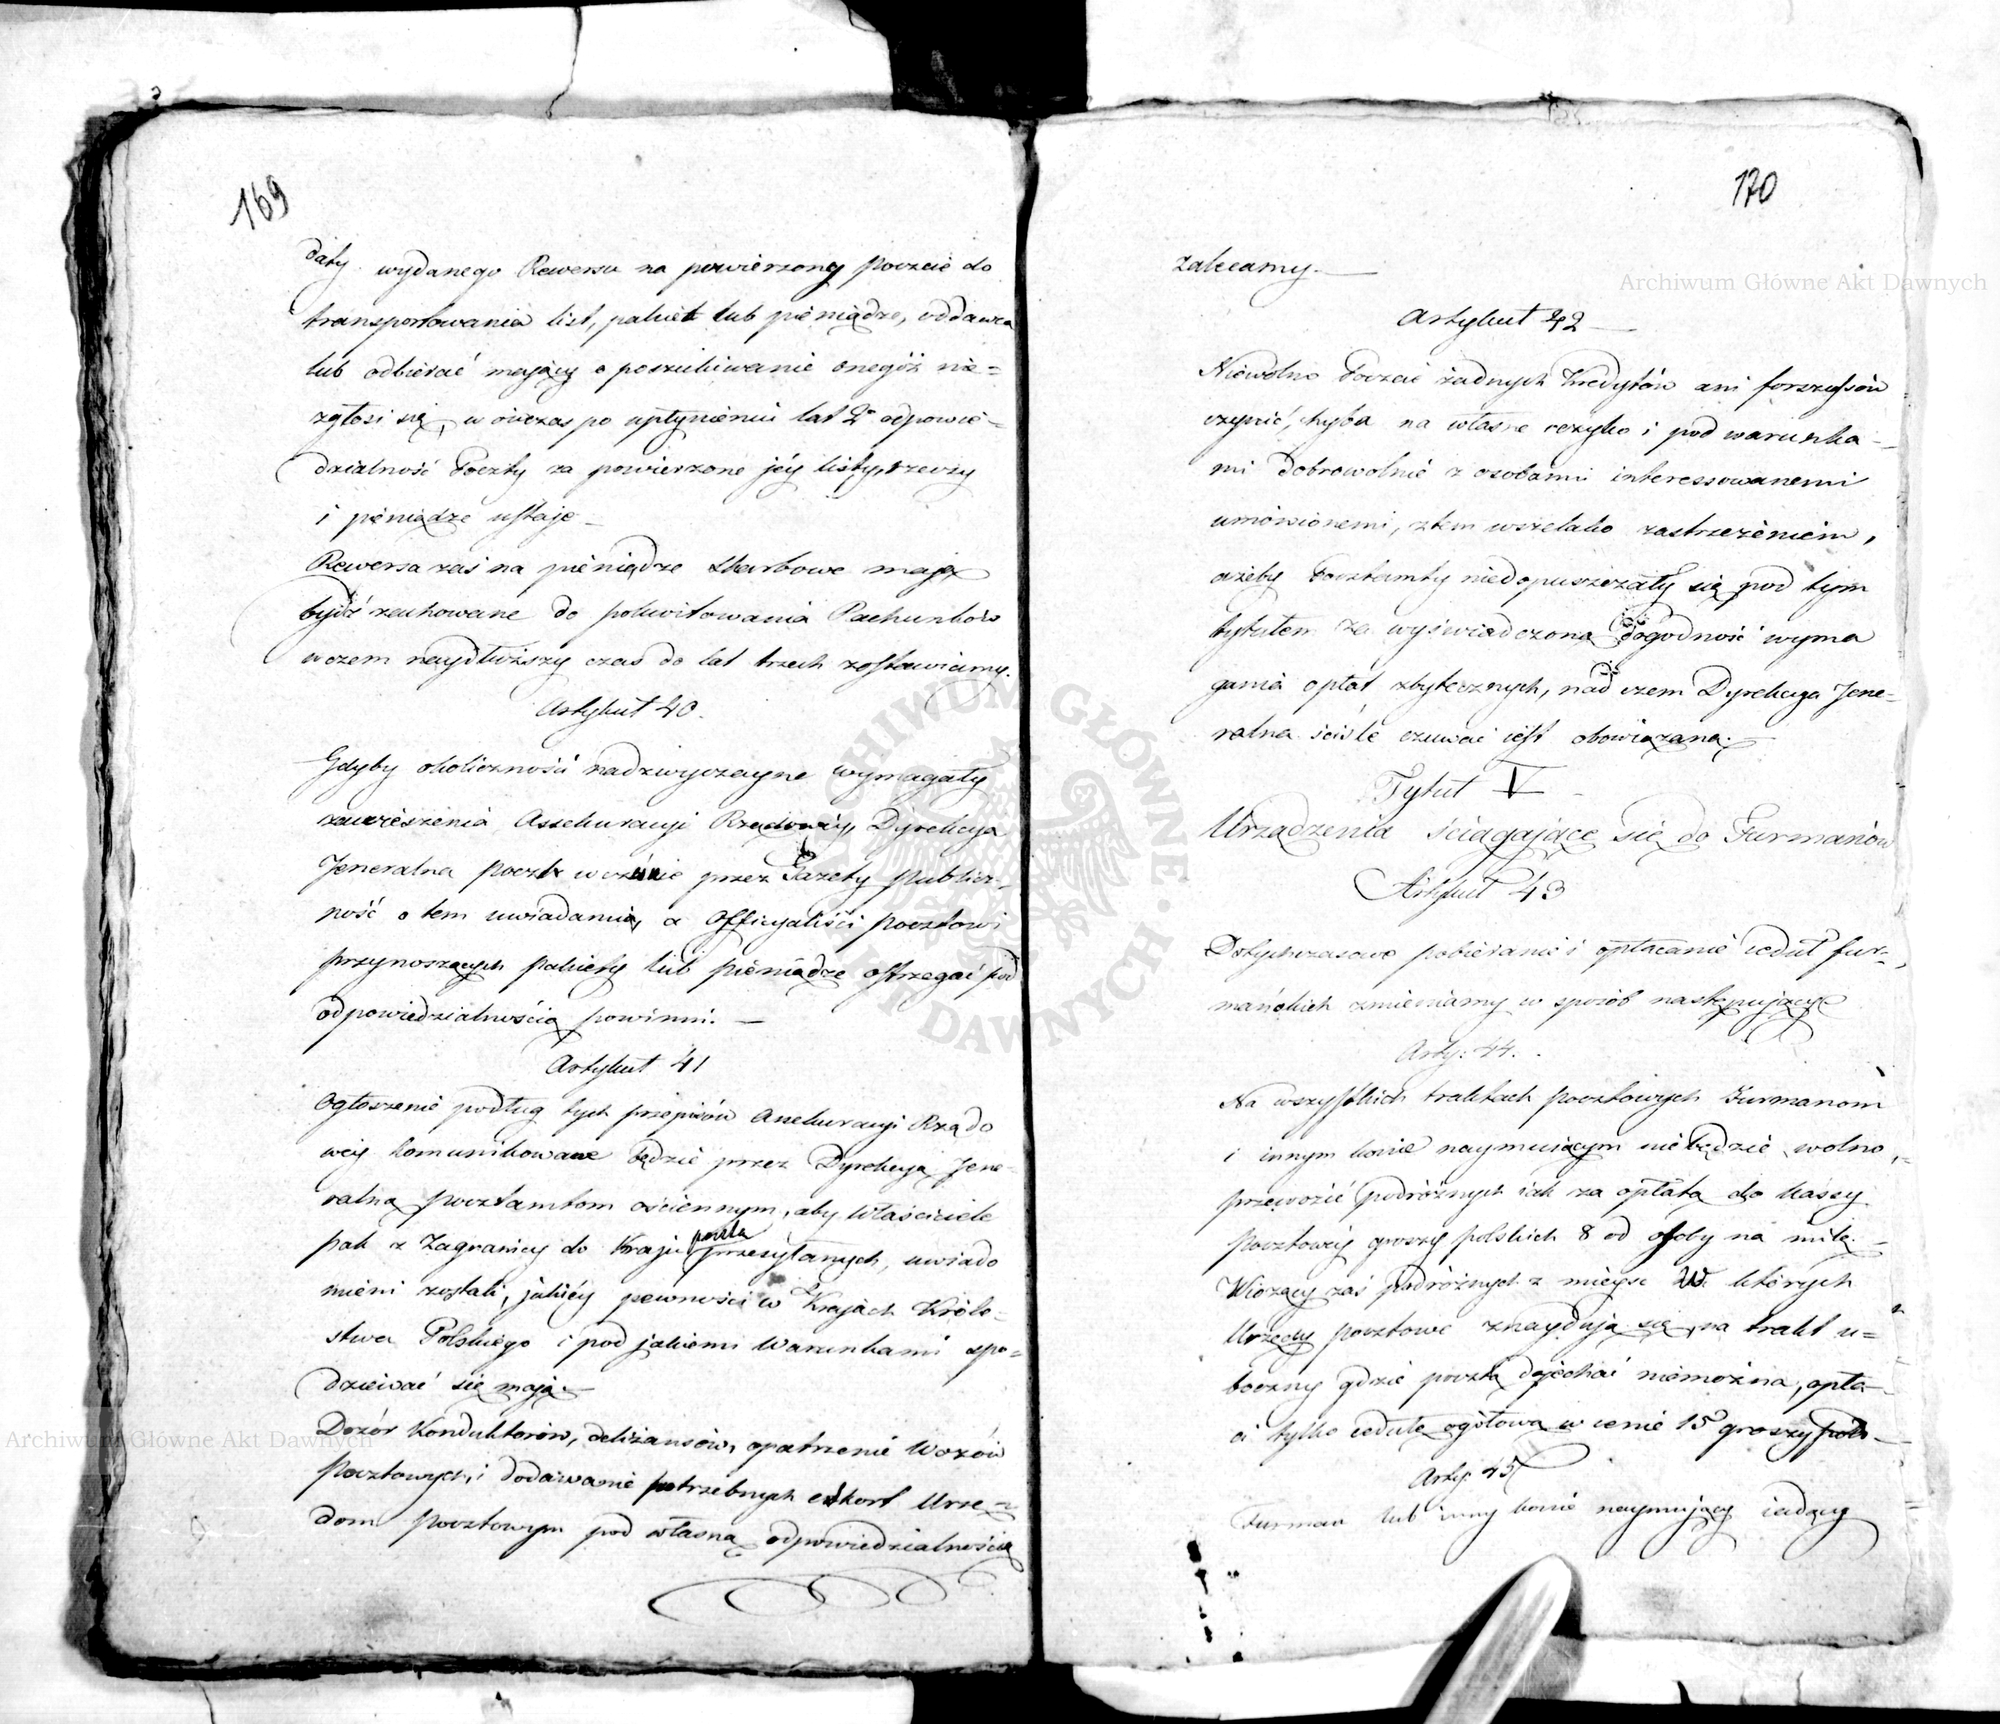 169
daty wydanego Rewersu na powierzony Poczcie do
transportowania list, pakiet lub pieniądze, oddawca
lub odbierać mający o poszukiwanie onegóż nie=
zgłosi się, w ówczas po upłynieniu lat 2ch odpowie=
dzialność Poczty za powierzone jéy listy, rzeczy
i pieniądze ustaje
Rewersa zaś na pieniądze Skarbowe mają
bydź zachowane do pokwitowania Rachunków
w czem naydłuższy czas do lat trzech zostawiamy.
Artykuł 40.
Gdyby okoliczności nadzwyczayne wymagały
zawieszenia Assekuracyi Rządowéy Dyrekcya
Jeneralna poczt wcześnie przez Gazety publicz=
ność o tem uwiadamia, a Officyaliści pocztowi
przynoszących pakiety lub pieniądze ostrzegać pod
odpowiedzialnością powinni. —
Artykuł 41
Ogłoszenie podług tych przepisów Assekuracyi Rządo
wéy komunikowane będzie przez Dyrekcyą Jene=
ralną pocztamtom ościennym, aby właściciele
pak z Zagranicy do Kraju pocztą przesyłanych, uwiado
mieni zostali, jakiéy pewności w Krajach Króle=
stwa Polskiego i pod jakiemi Warunkami spo=
dziewać się mają. —
Dozór Konduktorów, deliżansów, opatrzenie Wozów
Pocztowych, i dodawanie potrzebnych eskort Urzę=
dom pocztowym pod własną odpowiedzialnością
170
zalecamy. —
Artykuł 42 —
Niewolno Poczcie żadnych Kredytów ani forszusów
czynić, chyba na własne rezyko i pod warunka=
mi dobrowolnie z osobami interessowanemi
umówionemi, z tem wszelako zastrzeżeniem,
ażeby Pocztamty niedopuszczały się pod tym
tytułem za wyświadczoną dogodność wyma
gania opłat zbytecznych, nad czem Dyrekcya Jene=
ralna ściśle czuwać iest obowiązana. —
Tytuł V
Urządzenia ściągające się do Furmanów
Artykuł 43
Dotychczasowe pobieranie i opłacanie ceduł fur=
mańskich zmieniamy w sposób następujący
Arty: 44.
Na wszystkich traktach pocztowych Furmanom
i innym konie naymującym nie będzie wolno,
przewozić podróżnych iak za opłatą do kassy
pocztowéy groszy polskich 8 od osoby na milę. —
Wiozący zaś podróżnych z mieysc w których
Urzędy pocztowe znaydują się, na trakt u=
boczny gdzie pocztą dojechać niemożna, opła=
ci tylko cedułę ogółową w cenie 15 groszy pols.
Arty: 45
Furman lub inny konie naymujący iadący
Archiwum Główne Akt Dawnych
Archiwum Główne Akt Dawnych
ARCHIWUM GŁÓWNE AKT DAWNYCH